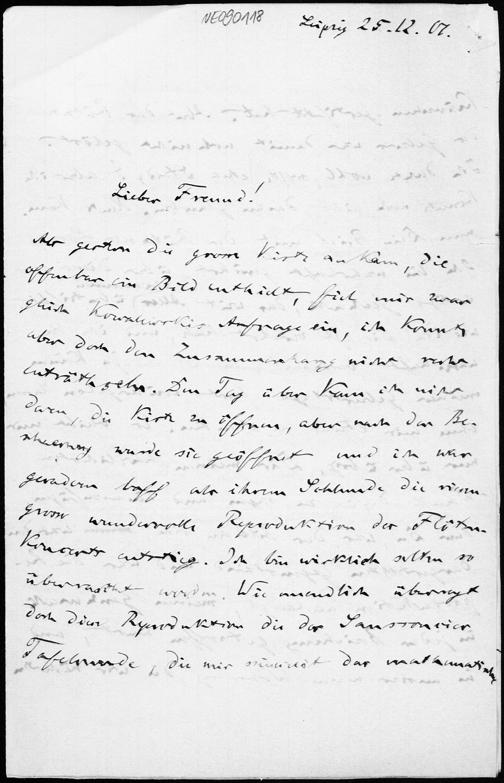 NE090118
Leipzig 25.12.07.
Lieber Freund!
Als gestern die grosse Kiste ankam, die
offenbar ein Bild enthielt, fiel mir zwar
gleich Kowalewskis Anfrage ein, ich konnte
aber doch den Zusammenhang nicht recht
enträthseln. Den Tag über kam ich nicht
dazu, die Kiste zu öffnen, aber nach der Be-
scheerung wurde sie geöffnet und ich war
geradezu baff als ihrem Schlunde die riesen-
grosse wundervolle Reproduktion des Flöten-
Konzerts entstieg. Ich bin wirklich selten so
überrascht worden. Wie unendlich überragt
doch diese Reproduktion die der Sanssoucier
Tafelrunde, die mir das mathematische